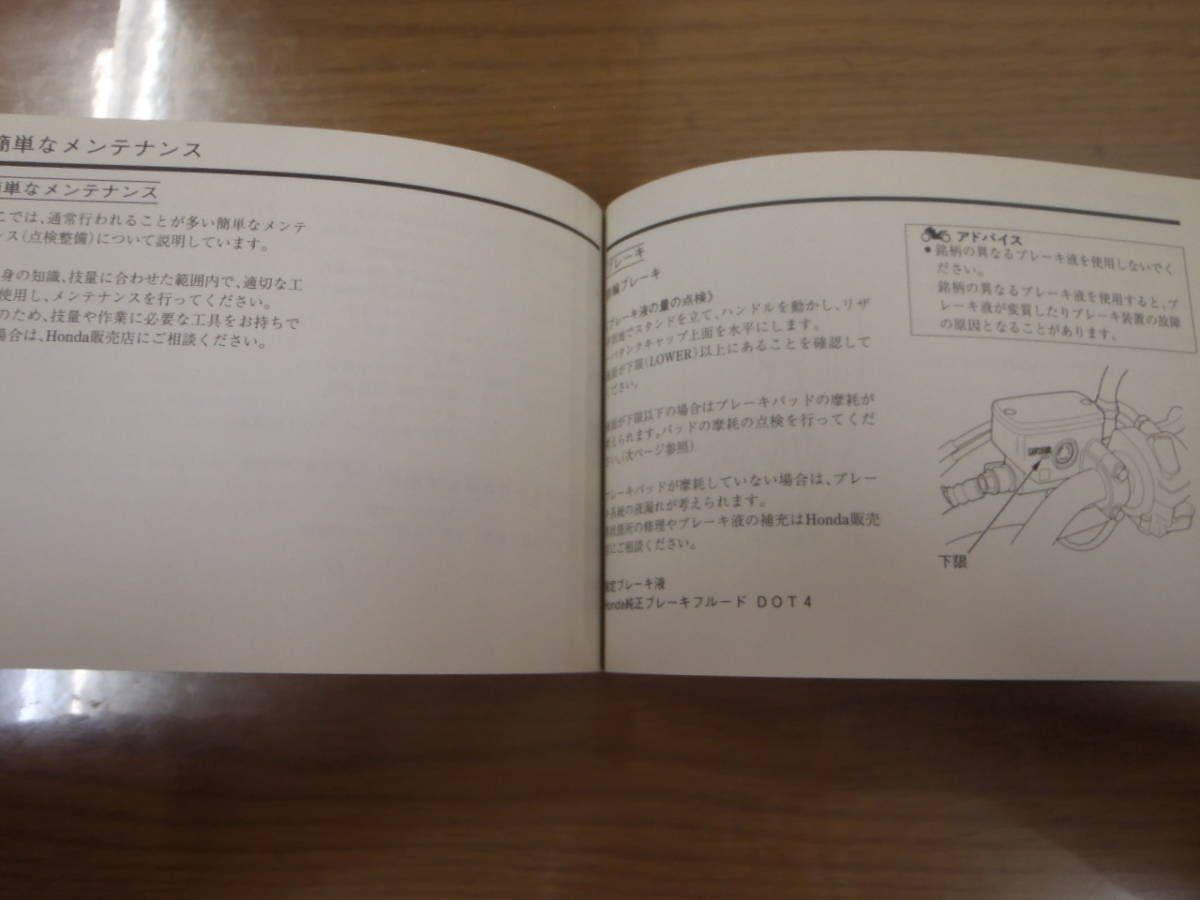 簡単なメンテナンス
単なメンテナンス
こでは、通常行われることが多い簡単なメンテ
ンス(点検整備)について説明しています。
身の知識、技量に合わせた範囲内で、適切な工
使用し、メンテナンスを行ってください。
のため、技量や作業に必要な工具をお持ちで
場合は、Honda販売店にご相談ください。
ブレーキ
輪ブレーキ
ブレーキ液の量の点検》
でスタンドを立て、ハンドルを動かし、リザ
バタンクキャップ上面を水平にします。
面が下限(LOWER)以上にあることを確認して
ください。
面が下限以下の場合はブレーキパッドの摩耗が
えられます。パッドの摩耗の点検を行ってくだ
さい。(次ページ参照)
レーキパッドが摩耗していない場合は、ブレー
系統の液漏れが考えられます。
箇所の修理やブレーキ液の補充はHonda販売
にご相談ください。
定ブレーキ液
Honda純正ブレーキフルード DOT4
アドバイス
● 銘柄の異なるブレーキ液を使用しないでく
ださい。
銘柄の異なるブレーキ液を使用すると、ブ
レーキ液が変質したりブレーキ装置の故障
の原因となることがあります。
LOWER
下限